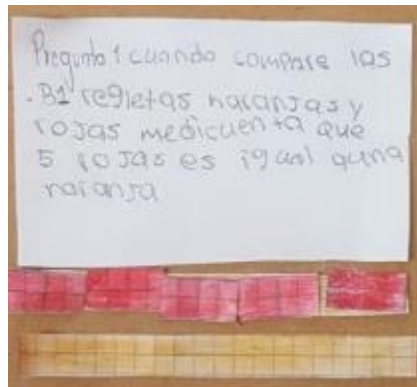 Pregunta 1 cuando compare las
. B1 regletas naranjas y
rojas medicuenta que
5 rojas es igual auna
naranja